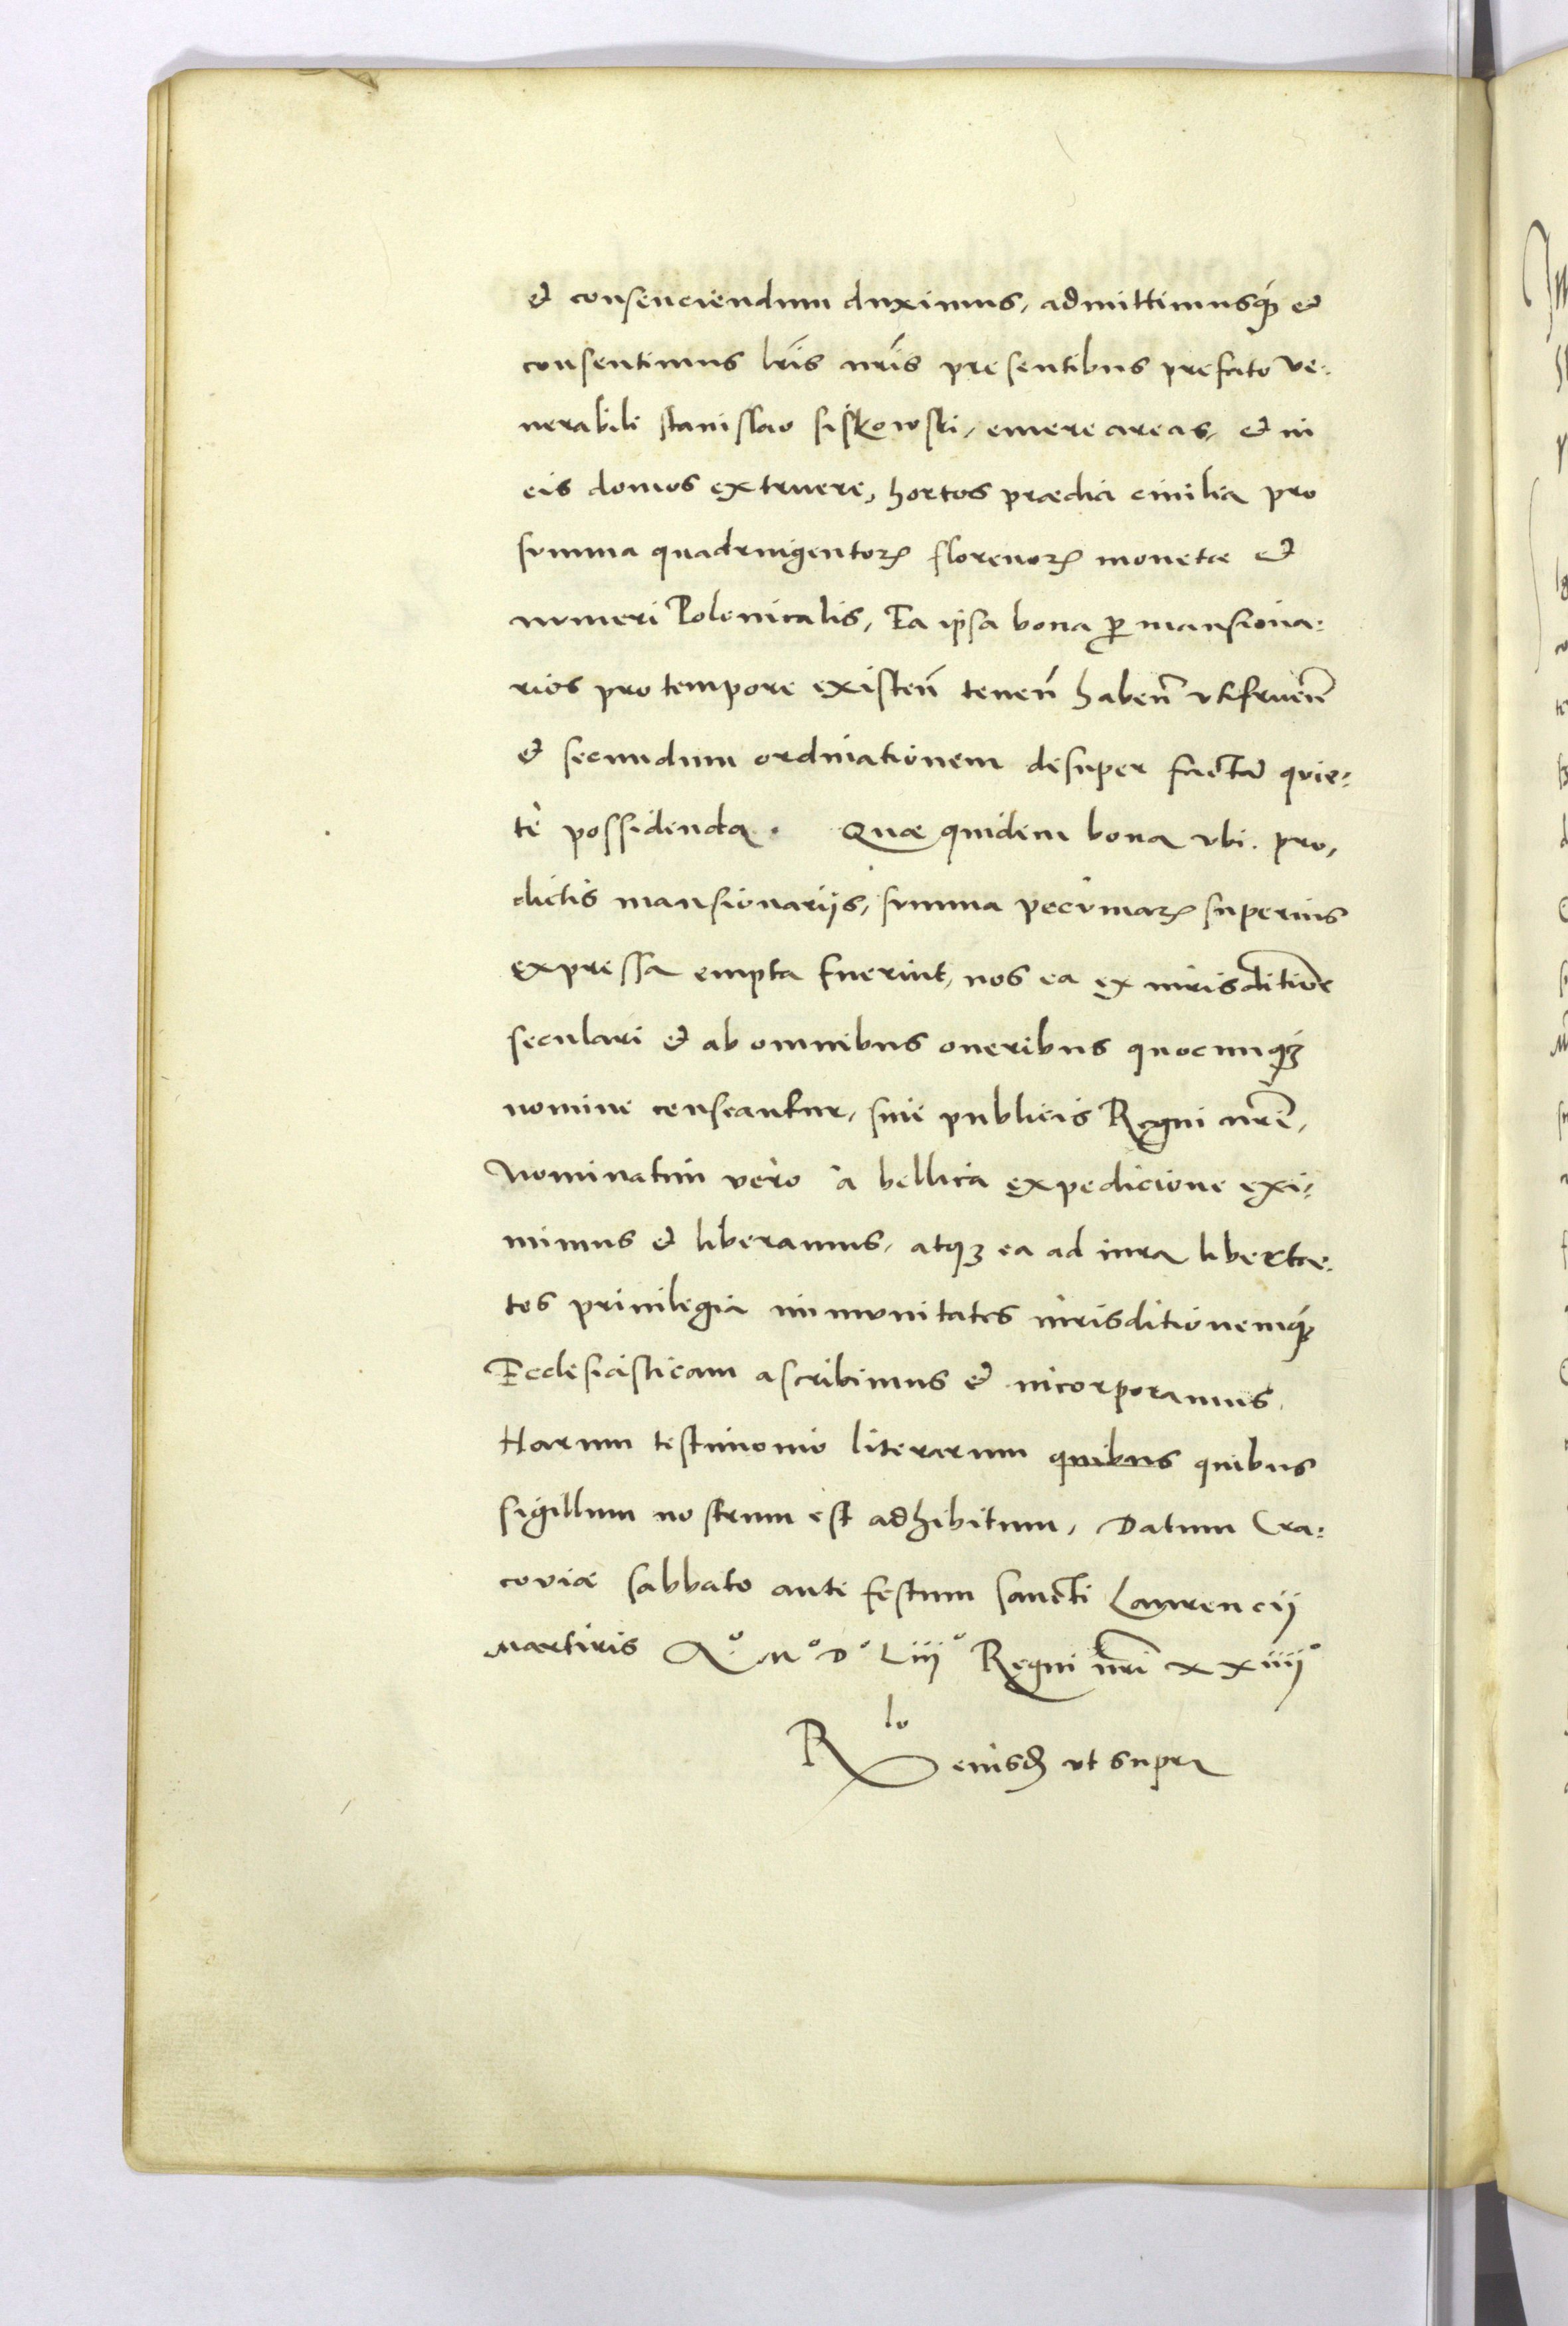 et consenciendum duximus, admittimusq́ꝫ et
consentimus lr̃is nr̃is presentibus prefato ve:
nerabili stanislao siskowski, emere areas, et in
eis domos extruere, hortos prædia ciuilia pro
summa quadringentoꝝ florenoꝝ monetæ et
numeri Polonicalis, Ea ipsa bona ꝑ mansiona:
rios pro tempore existeñ teneñ habeñ vtifrueñ
et secundum ordinationem desuper factã quie:
te possidenda. Quæ quidem bona vbi. pro,
dictis mansionarijs, summa pecuniaꝝ superius
expressa empta fuerint, nos ea ex iurisditiõne
seculari et ab omnibus oneribus quocunqꝫ
nomine censeantur, siue publicis Regni nr̃i,
Nominatim vero à bellica expedicione exi:
mimus et liberamus, atqꝫ ea ad iura liberta:
tes priuilegia immunitates iurisditionemq́ꝫ
Ecclesiasticam ascribimus et incorporamus.
Harum testimonio literarum quibus quibus
sigillum nostrum est adhibitum, Datum Cra:
coviæ sabbato ante festum sancti Laurencij
martiris Aº. Mº Dº Liijº Regni nr̃i xxiiijº
Rlo eiusdꝫ vt supra